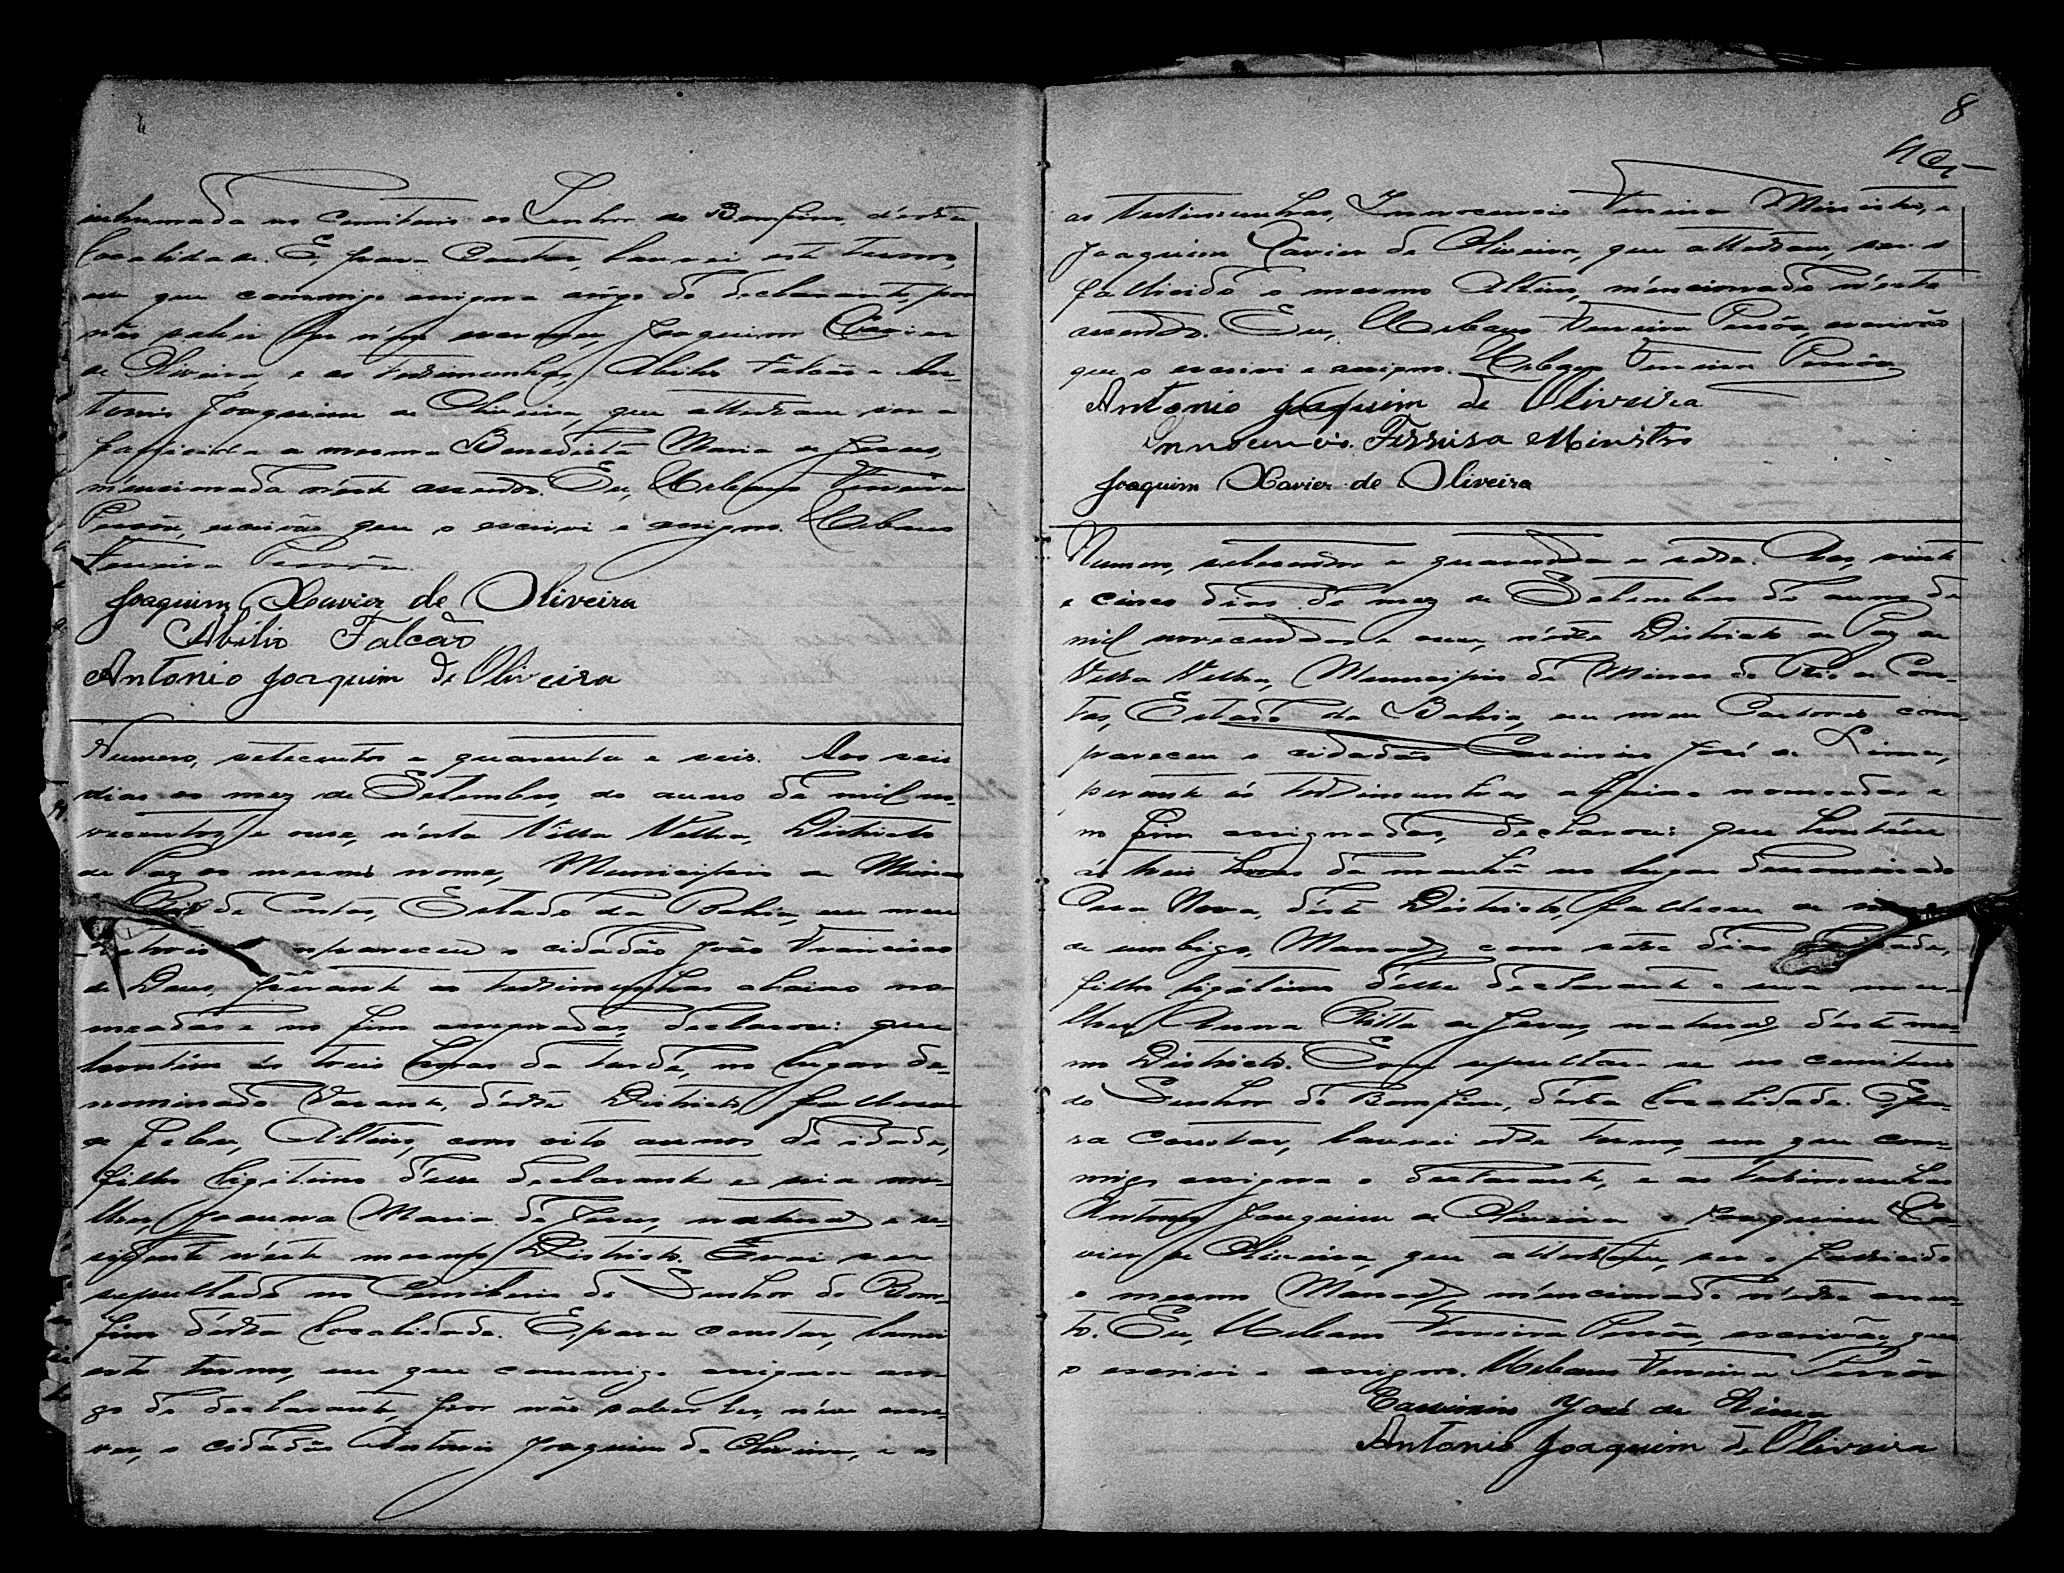 inhumada no Cemiterio do Senhor do Bomfim, d'esta
localidade. E, para Constar, lavrei este termo,
em que commigo assigna a rôgo do declarante, por
não saber ler n'em escrever, Joaquim Xavier
de Oliveira, e as testimunhas, Abilio Falcão e An-
tonio Joaquim de Oliveira, que attestam ser a
fallicida a mesma Benedicta Maria de Jesus,
mencionada n'este assento. Eu, Urbano Ferreira
Pessôa, escrivão que o escrivi e assigno. Urbano
Ferreira Pessôa.
Joaquim Xavier de Oliveira
Abilio Falcão
Antonio Joaquim de Oliveira
Numero, setecentos e quarenta e seis. Aos seis
dias do mez de Setembro, do anno de mil no-
vecentos e onse, n'esta Villa Velha, Districto
de Paz do mesmo nome, Municipio de Minas
Rio de Contas, Estado da Bahia, em meu
compareceu o cidadão João Francisco
de Deus, perante as testimunhas abaixo no-
meadas e no fim assignadas, declarou: que
hontem ás treis horas da tarde, no lugar de-
nominado Vasante, d'este Districto, falleceu
de febre, Altino, com oito annos de idade,
filho ligitimo d'esse declarante e sua mu-
lher, Joanna Maria de Jesus, natural e re-
sidente n'este mesmo Districto. E vai ser
sepultado no Cemiterio do Senhor do Bom-
fim d'esta localidade. E, para constar, lavrei
este termo, em que commigo assigna a ro-
go do declarante, por não saber ler, n'em escre-
ver, o cidadão Antonio Joaquim de Oliveira, e as
8
as testimunhas, Innocencio Ferreira Ministro, e
Joaquim Xavier de Oliveira, que attestam, ser o
fallicido o mesmo Altino, mencionado n'este
assento. Eu, Urbano Ferreira Pessôa, escrivão
que o escrivi e assigno. Urbano Ferreira Pessôa
Antonio Joaquim de Oliveira
Innocencio Ferreira Ministro
Joaquim Xavier de Oliveira
Numero, setecentos e quarenta e sete. Aos, vinte
e cinco dias do mez de Setembro do anno de
mil novecentos e onse, n'este Districto de Paz de
Villa Velha, Municipio de Minas do Rio de Con-
tas, Estado da Bahia, em meu Cartorio com-
pareceu o cidadão Cassimiro José de Lima,
perante ás testimunhas abaixo nomeadas e
no fim assignadas, declarou: que hontem
ás treis horas da manhã no lugar denominado
Casa Nova, d'este Districto, falleceu de
de umbigo, Manoel, com sete dias de idade,
filho ligitimo d'esse declarante e sua mu-
lher Anna Ritta de Jesus, natural d'este mes-
mo Districto. E vai sepultar-se no cemiterio
do Senhor do Bomfim, d'esta localidade. E, pa-
ra constar, lavrei este termo, em que com-
migo assigna o declarante, e as testimunhas
Antonio Joaquim de Oliveira e Joaquim Xa-
vier de Oliveira, que attestam, ser o fallicido
o mesmo Manoel, mencionado n'este assen-
to. Eu, Urbano Ferreira Pessôa, escrivão, que
o escrivi e assigno. Urbano Ferreira Pessôa
Cassimiro José de Lima
Antonio Joaquim de Oliveira